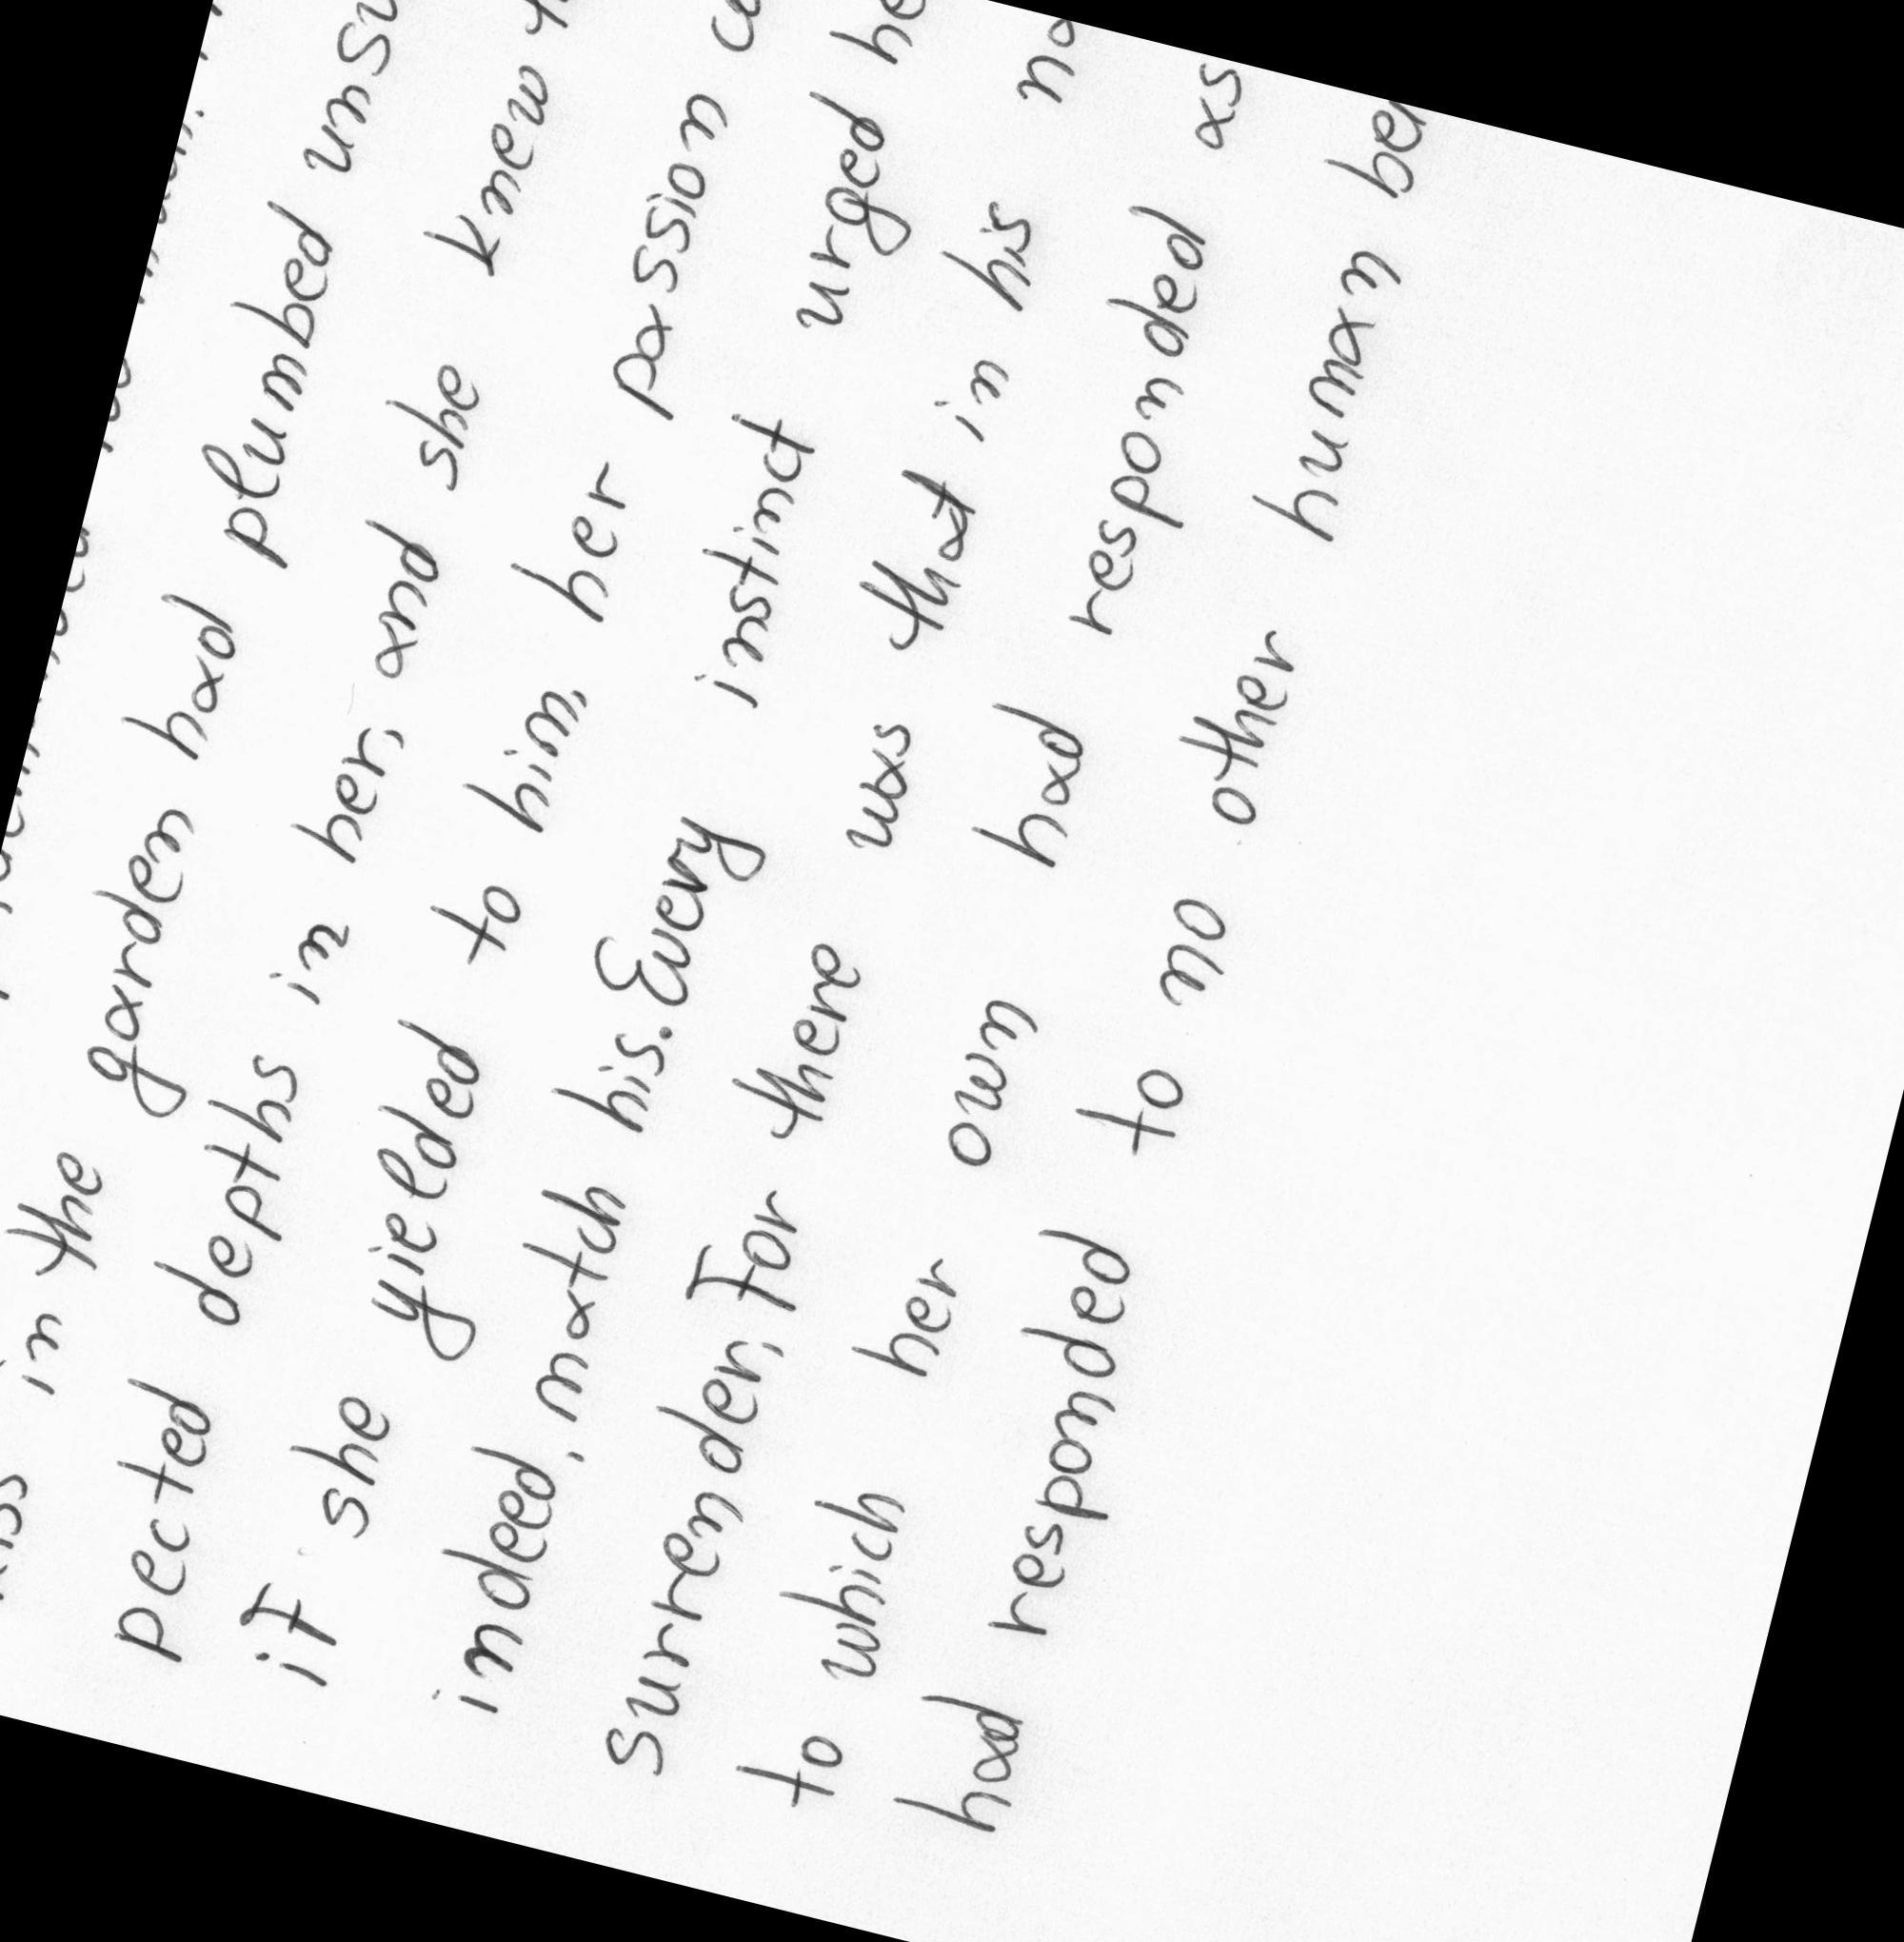 in the garden had plumbed unsu
pected depths in her, and she knew
if she yielded to him, her passion
indeed, match his. Every instinct urged he
surrender. For there was that in his
to which her own had responded as
had responded to no other human bei